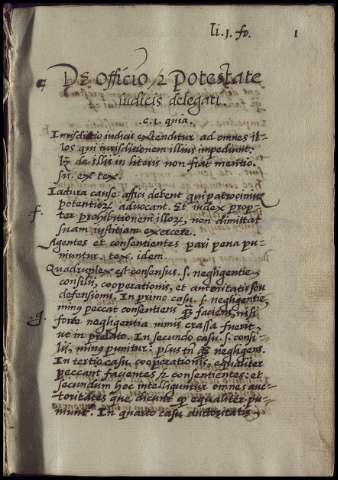 li. 1. fo. 1
De officio & potestate
iudicis delegati.
c. 1. quia.
Iurisdictio iudicis extenditur ad omnes il-
los qui iurisdictionem illius impediunt:
de illis in literis non fiat mentio.
ex tex.
Iactura causae affici debent qui patrocinium
potentiorum advocant. Et iudex prop-
ter prohibitionem illorum, non dimittat
suam iustitiam exercere.
Agentes et consentientes pari pena pu-
niuntur. tex. idem.
Quadruplex est consensus. s. negligentie
consilii, cooperationis, et autoritatis seu
defensionis. In primo casu. s. negligentie,
minus peccat consentiens faciens, nisi
forte negligentia nimis crassa fuerit
ut in prelato. In secundo casu. s. consi-
lii, minus punitur: plus tamen negligens.
In tertio casu, cooperationis, equaliter
peccant facientes & consentientes: et
secundum hoc intelliguntur omnes auc-
toritates que dicunt equaliter pu-
niunt. In quarto casu authoritatis